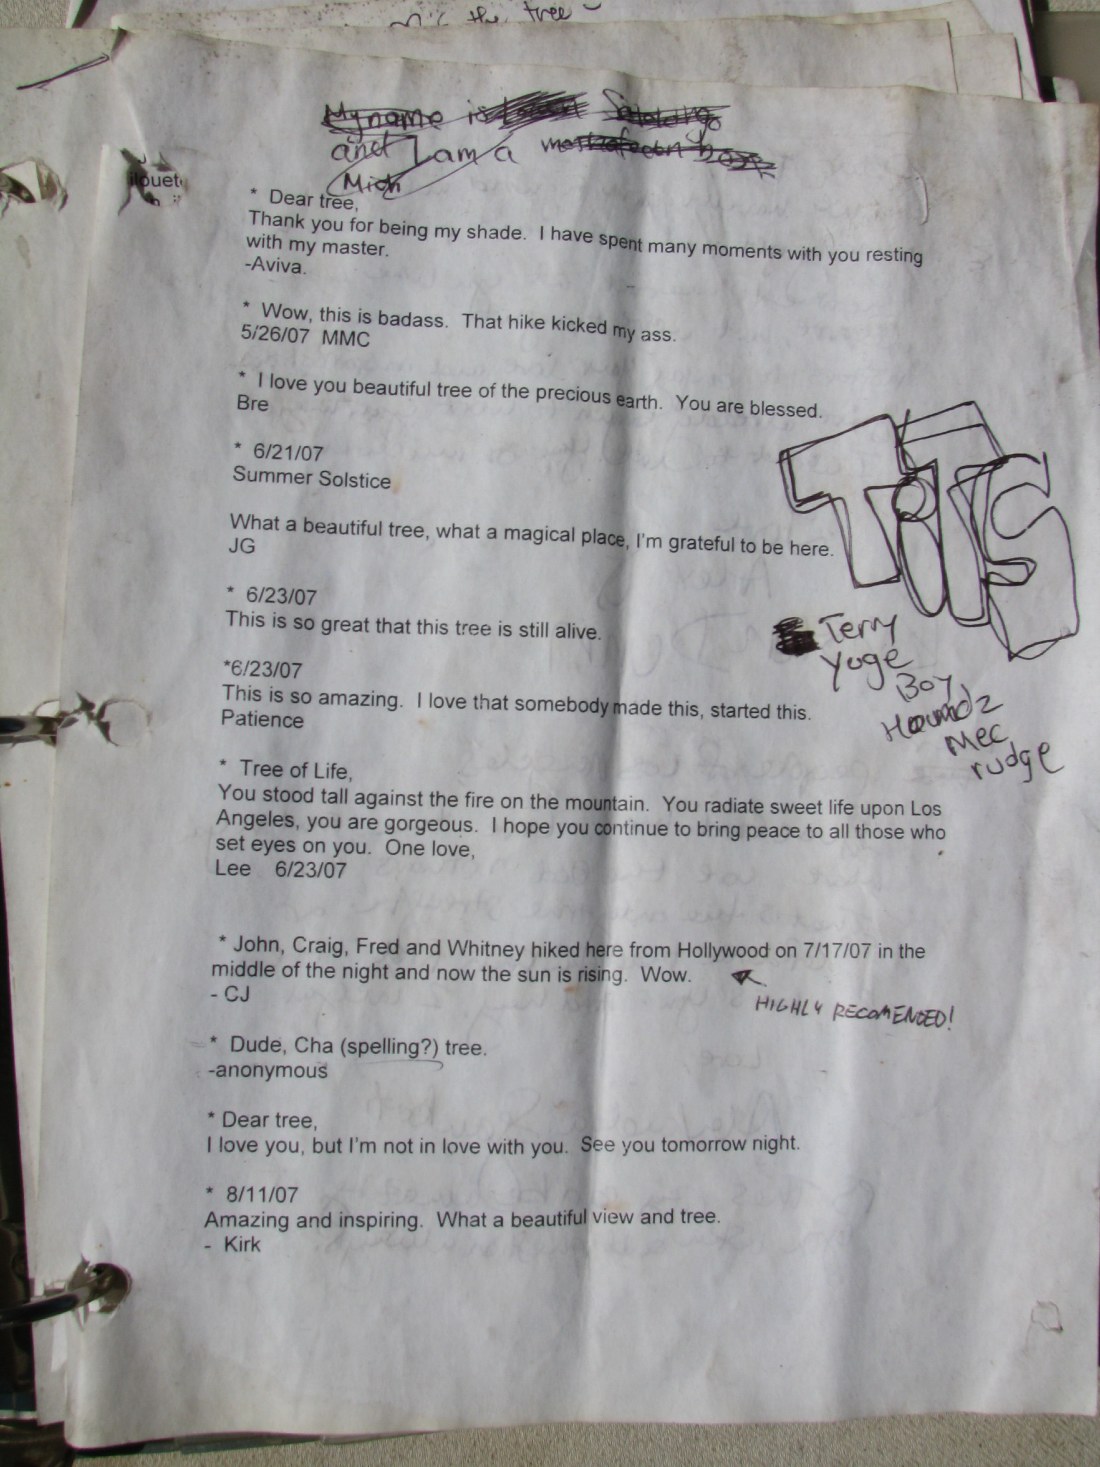 the tree
My name is
and I am a
Mich
* Dear tree,
Thank you for being my shade.  I have spent many moments with you resting
with my master.
-Aviva.
* Wow, this is badass.  That hike kicked my ass.
5/26/07  MMC
* I love you beautiful tree of the precious earth.  You are blessed.
Bre
* 6/21/07
Summer Solstice
What a beautiful tree, what a magical place, I'm grateful to be here.
JG
TITS
* 6/23/07
This is so great that this tree is still alive.
Terry
Yoge
Boy
Houndz
Mec
rudge
*6/23/07
This is so amazing.  I love that somebody made this, started this.
Patience
* Tree of Life,
You stood tall against the fire on the mountain.  You radiate sweet life upon Los
Angeles, you are gorgeous.  I hope you continue to bring peace to all those who
set eyes on you.  One love,
Lee    6/23/07
* John, Craig, Fred and Whitney hiked here from Hollywood on 7/17/07 in the
middle of the night and now the sun is rising.  Wow.
- CJ
HIGHLY RECOMENDED!
* Dude, Cha (spelling?) tree.
-anonymous
* Dear tree,
I love you, but I'm not in love with you.  See you tomorrow night.
* 8/11/07
Amazing and inspiring.  What a beautiful view and tree.
- Kirk